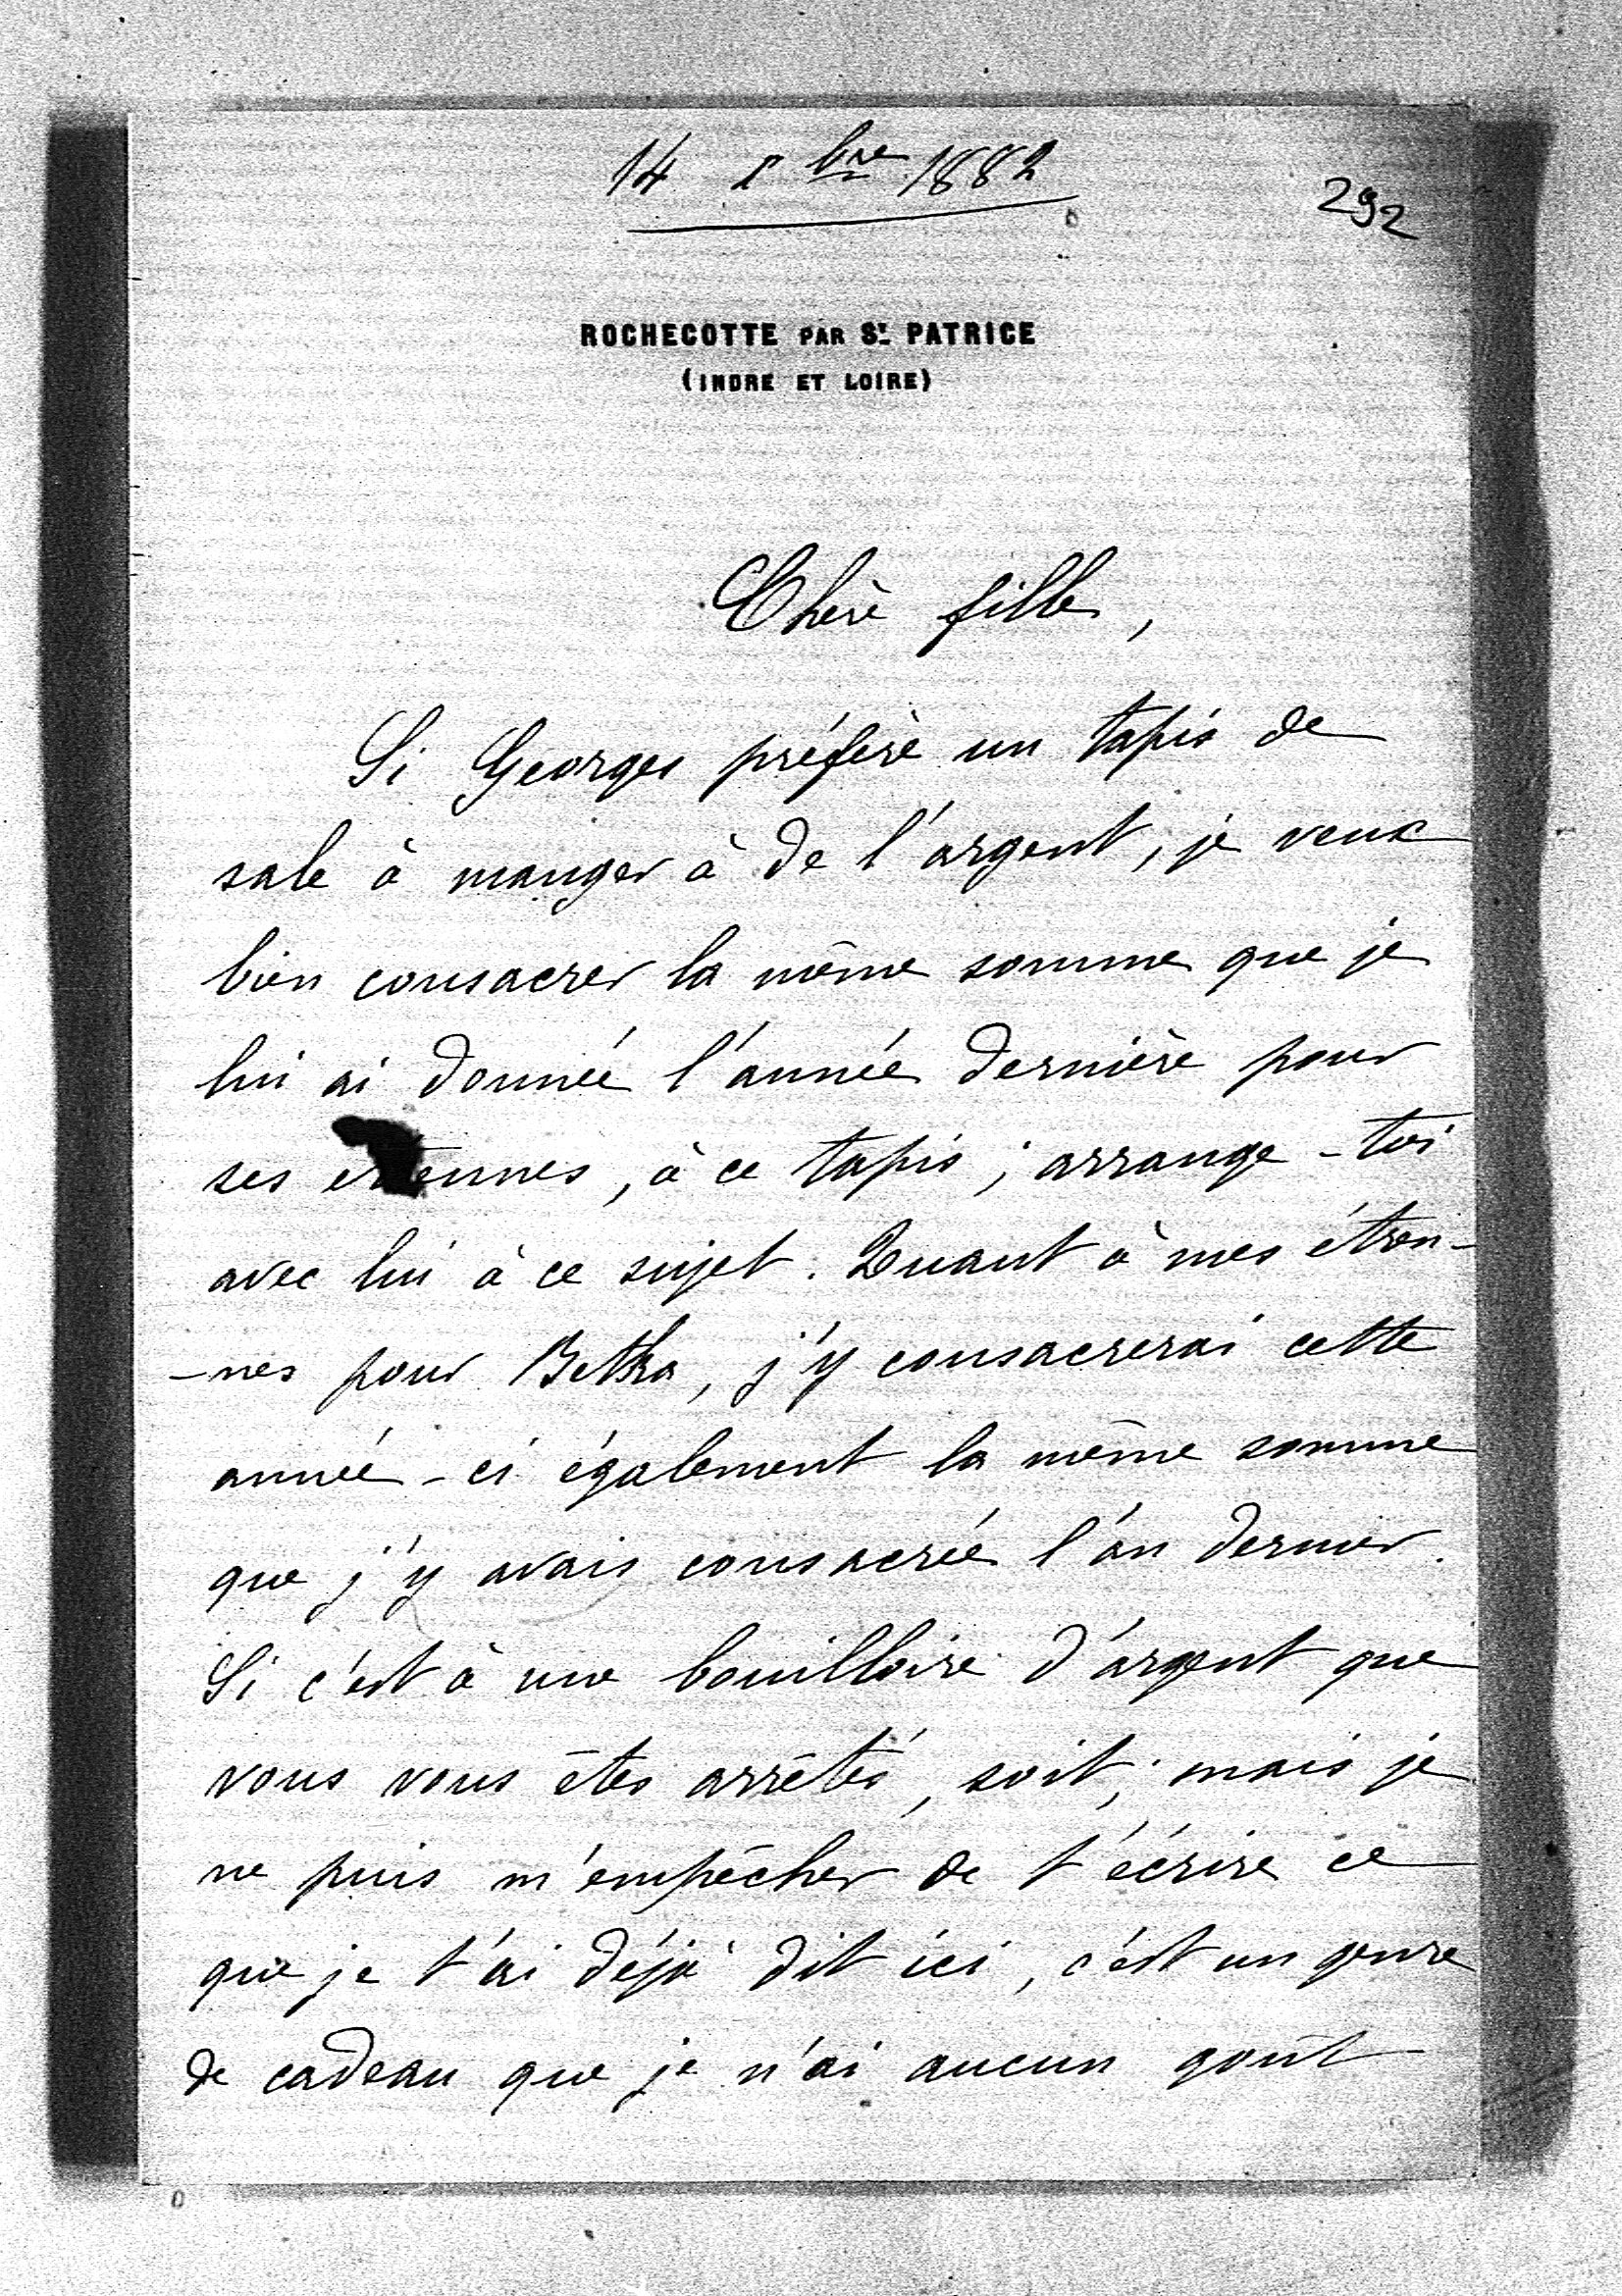 14 Xbre 1882
292
ROCHECOTTE PAR ST. PATRICE
(INDRE ET LOIRE)
Chère fille,
Si Georges préfère un tapis de
sale à manger à de l'argent, je veux
bien consacrer la même somme que je
lui ai donnée l'année dernière pour
ses étrennes, à ce tapis ; arrange-toi
avec lui à ce sujet. Quant à mes étren-
-nes pour Betka, j'y consacrerai cette
année-ci également la même somme
que j'y avais consacrée l'an dernier.
Si c'est à une bouilloire d'argent que
vous vous êtes arrêtés, soit ; mais je
ne puis m'empêcher de t'écrire ce
que je t'ai déjà dit ici, c'est un genre
de cadeau que je n'ai aucun goût